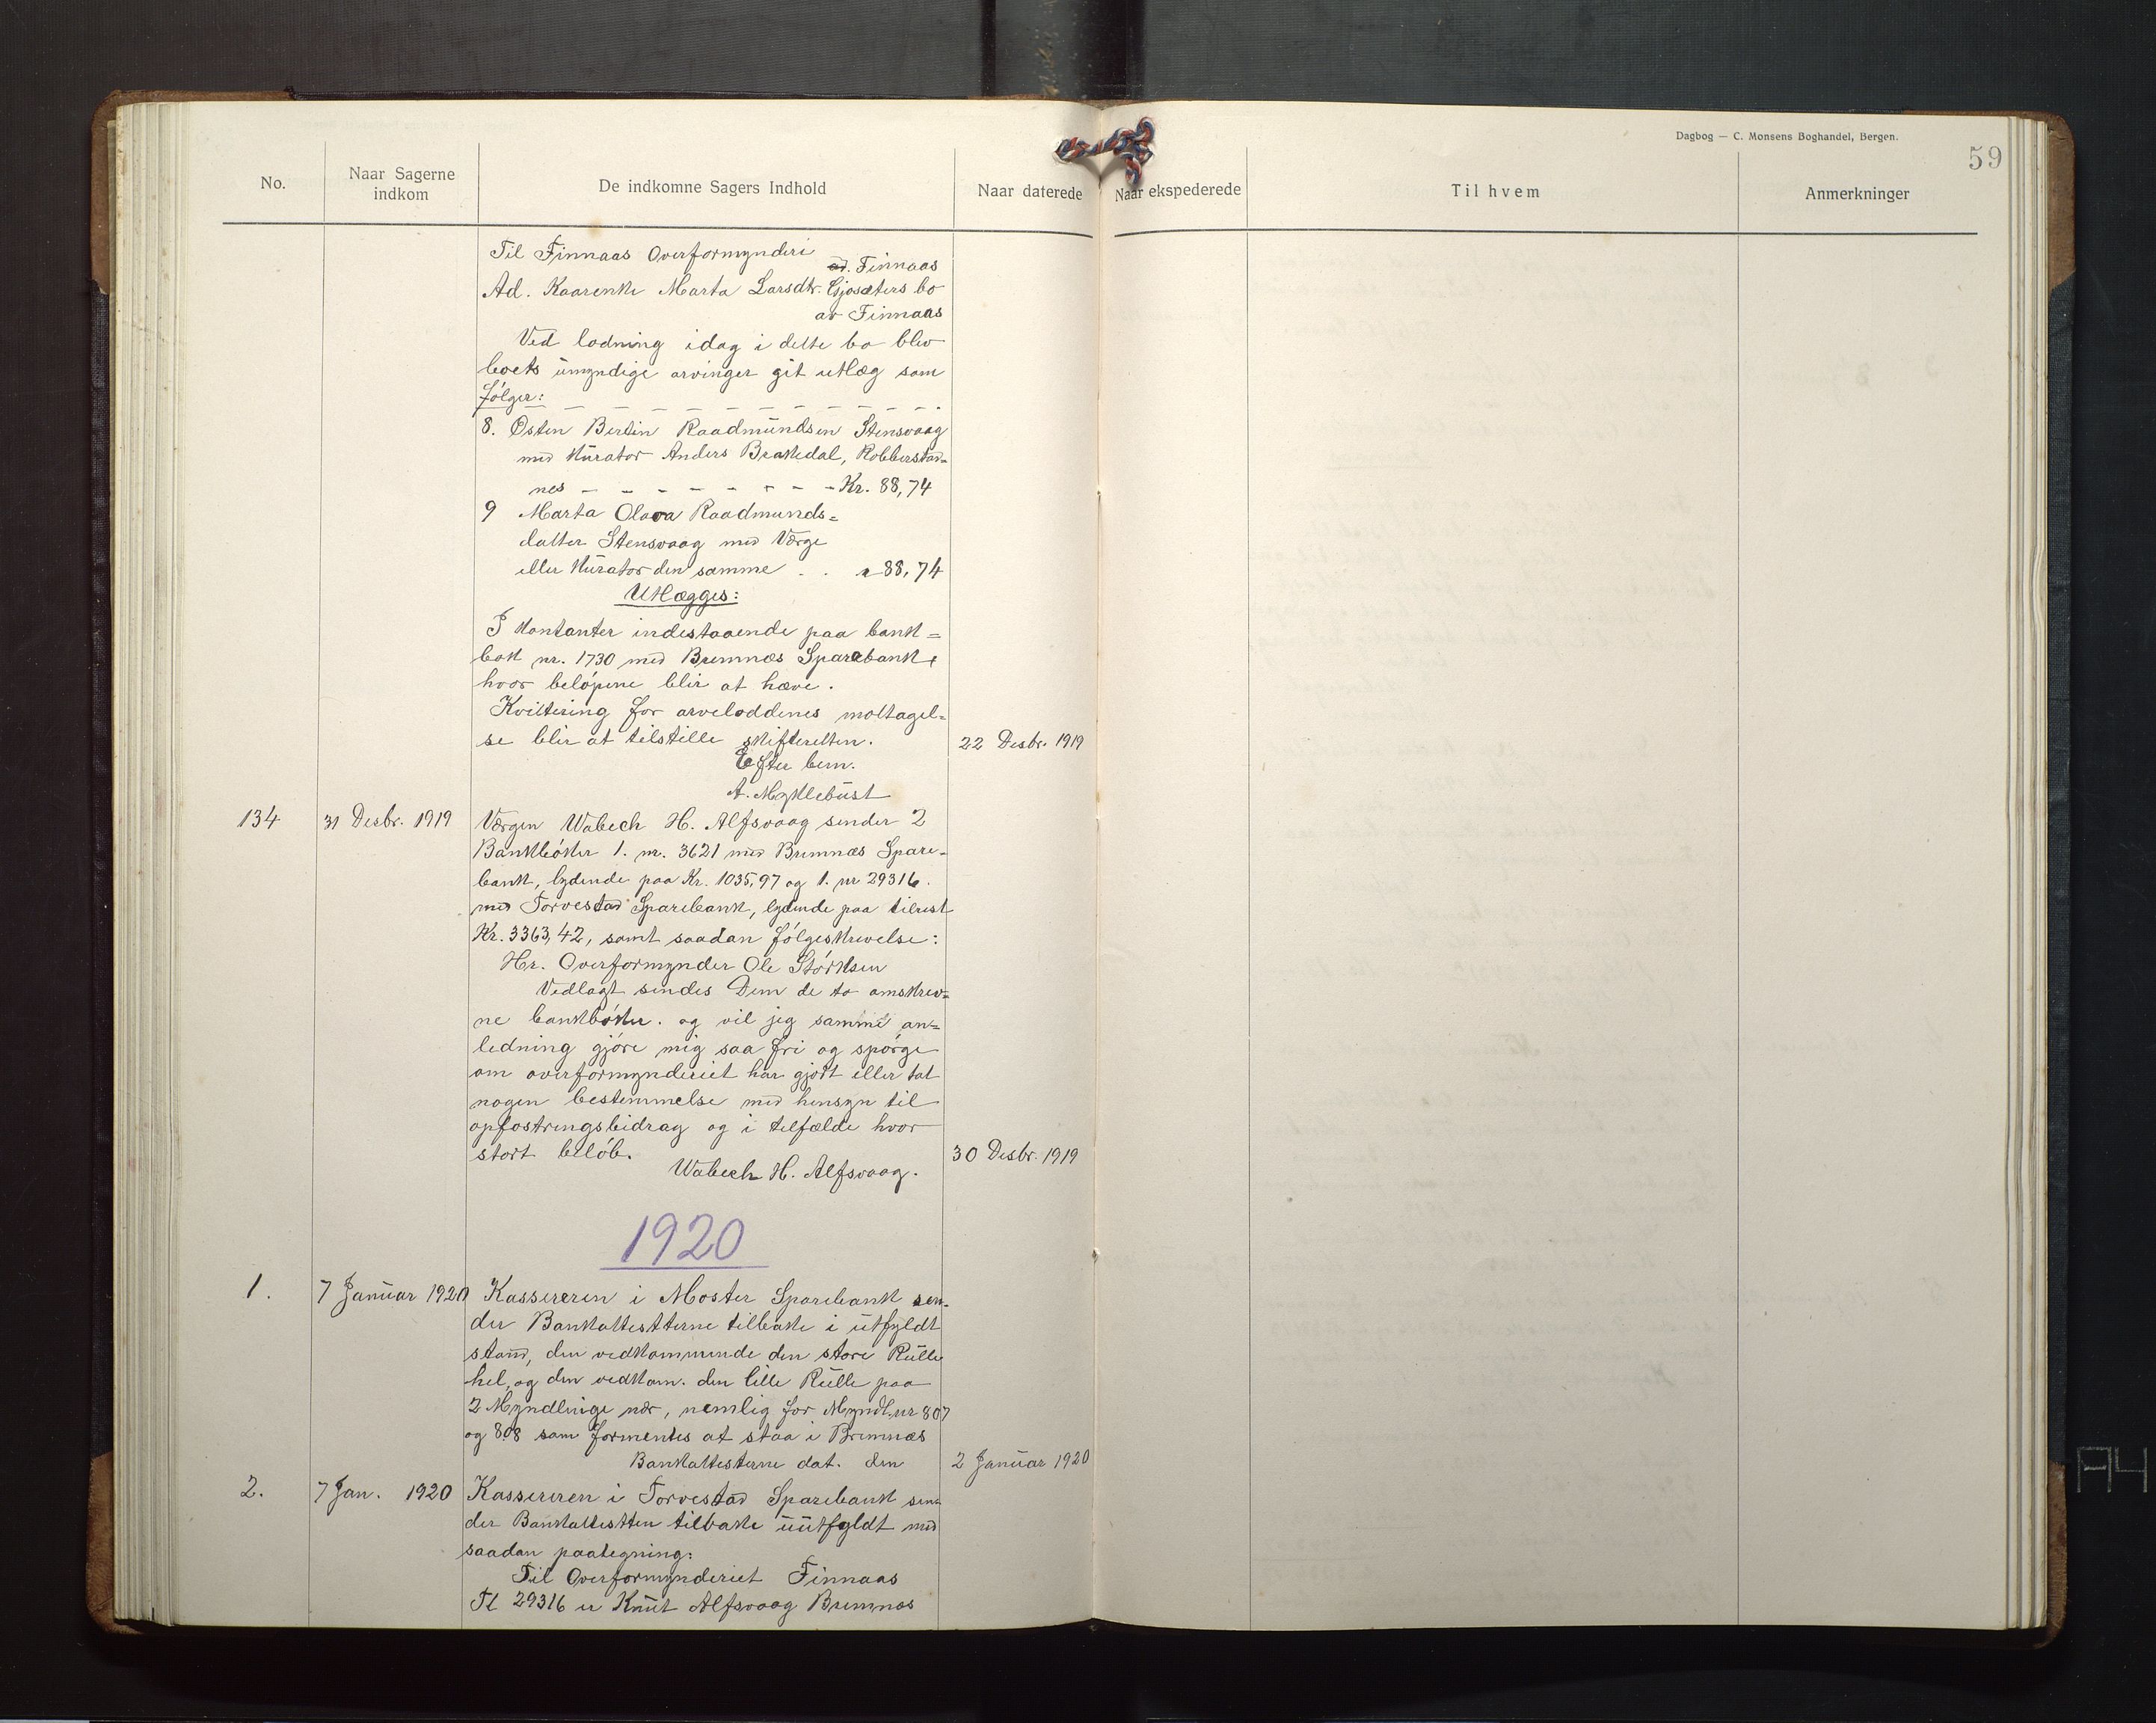 Dagbog — C. Monsens Boghandel, Bergen.
59
No.
Naar Sagerne
indkom
De indkomne Sagers Indhold
Naar daterede
Naar ekspederede
Til hvem
Anmerkninger
Til Finnaas Overformynderi
ad. Finnaas
Ad. Kaarenke Marta Larsdtr. Gjosæters bo
av Finnaas
Ved lodning idag i dette bo blev
boets umyndige arvinger git utlæg som
følger:
8. Østen Bertin Raadmundsen Stensvaag
med kurator Anders Brakedal, Robberstad-
nes - - - - - - - - Kr. 88,74
9 Marta Olava Raadmunds=
datter Stensvaag med Værge
eller kurator den samme . . " 88,74
Utlægges:
I kontanter indestaaende paa bank=
bok nr. 1730 med Bremnes Sparebank,
hvor beløpene blir at hæve.
Kvittering for arveloddenes mottagel=
se blir at tilstille skifteretten.
22 Desbr. 1919
Efter bem.
A. Myklebust
134
31 Desbr. 1919
Værgen Wabech H. Alfsvaag sender 2
Bankbøker 1. nr. 3621 med Bremnæs Spare-
bank, lydende paa Kr. 1035,97 og 1. nr 29316.
med Torvestad Sparebank, lydende paa tilrest
Kr. 3363,42, samt saadan følgeskrivelse:
Hr. Overformynder Ole Størksen
Vedlagt sendes Dem de to omskrev=
ne bankbøker. og vil jeg samme an=
ledning gjøre mig saa fri og spørge
om overformynderiet har gjort eller tat
nogen bestemmelse med hensyn til
opfostringsbidrag og i tilfælde hvor
stort beløb.
30 Desbr. 1919
Wabech H. Alfsvaag.
1920
1.
7 Januar 1920
Kassereren i Moster Sparebank sen-
der Bankattestterne tilbake i utfyldt
stand, den vedkommende den store Rulle
hel, og den vedkom. den lille Rulle paa
2 Myndlinge nær, nemlig for Myndl. nr 807
og 808 som formentes at staa i Bremnæs
Bankattesterne dat. den
2 Januar 1920
2.
7 Jan. 1920
Kassereren i Torvestad Sparebank sen-
der Bankattestten tilbake uutfyldt med
saadan paategning:
Til Overformynderiet Finnaas
Tl 29316 er Knut Alfsvaag Bremnæs